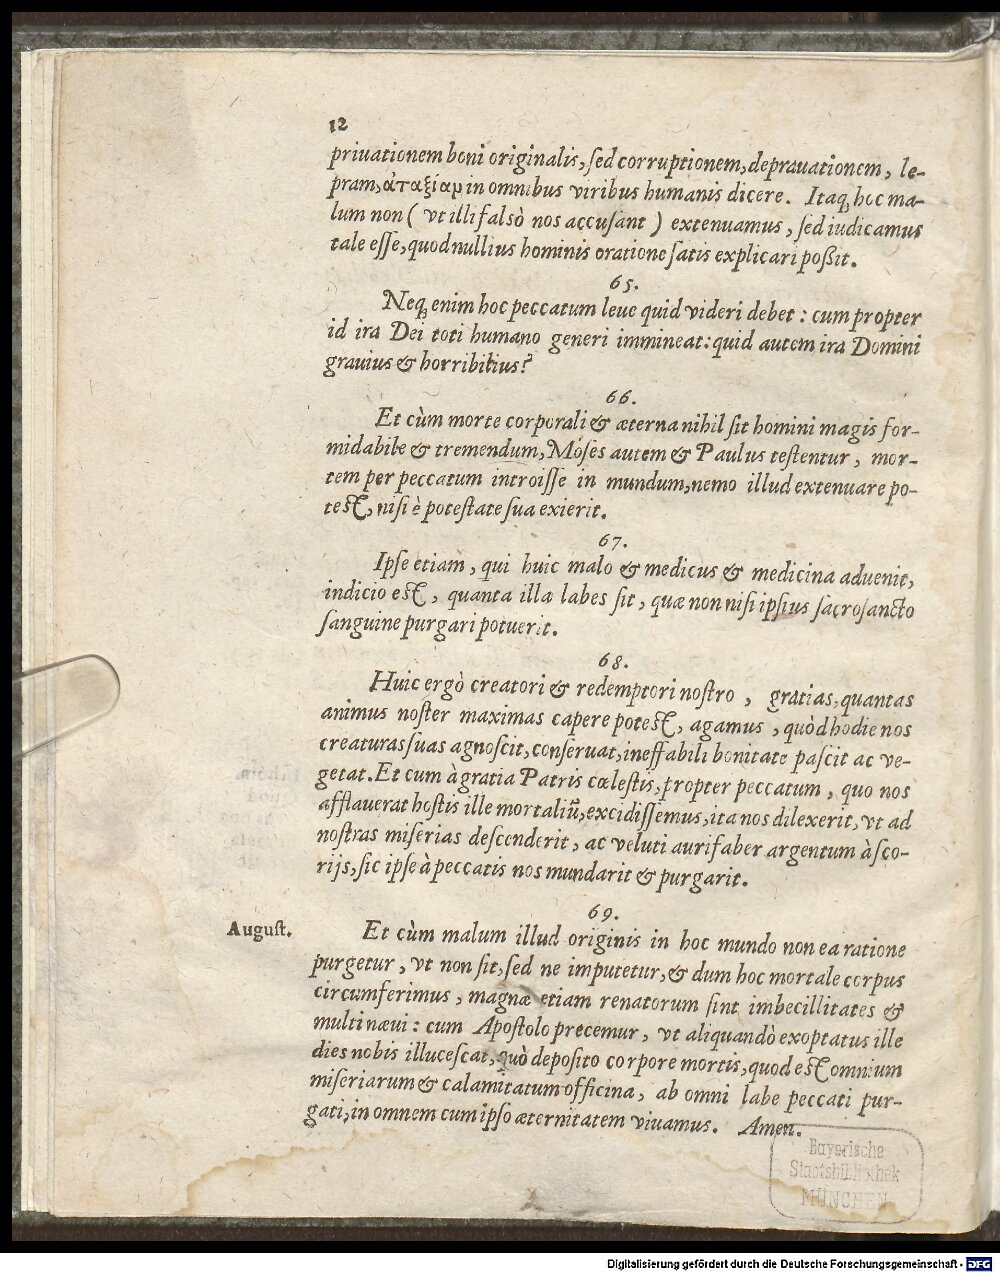 12
priuationem boni originalis, ſed corruptionem, deprauationem, le-
pram, ἀταξίαμ in omnibus viribus humanis dicere. Itaq; hoc ma-
lum non ( vt illi falsò nos accuſant ) extenuamus, ſed iudicamus
tale eſſe, quod nullius hominis oratione ſatis explicari poßit.
65.
Neq; enim hoc peccatum leue quid videri debet : cum propter
id ira Dei toti humano generi immineat: quid autem ira Domini
grauius & horribilius?
66.
Et cùm morte corporali & æterna nihil ſit homini magis for-
midabile & tremendum, Moſes autem & Paulus teſtentur, mor-
tem per peccatum introiſſe in mundum, nemo illud extenuare po-
teſt, niſi è poteſtate ſua exierit.
67.
Ipſe etiam, qui huic malo & medicus & medicina aduenit,
indicio eſt, quanta illa labes ſit, quæ non niſi ipſius ſacroſancto
ſanguine purgari potuerit.
68.
Huic ergò creatori & redemptori noſtro, gratias, quantas
animus noſter maximas capere poteſt, agamus, quòd hodie nos
creaturas ſuas agnoſcit, conſeruat, ineffabili bonitate paſcit ac ve-
getat. Et cum à gratia Patris cœleſtis, propter peccatum, quo nos
afflauerat hoſtis ille mortaliũ, excidiſſemus, ita nos dilexerit, vt ad
noſtras miſerias deſcenderit, ac veluti aurifaber argentum à ſco-
rijs, ſic ipſe à peccatis nos mundarit & purgarit.
69.
August.
Et cùm malum illud originis in hoc mundo non ea ratione
purgetur, vt non ſit, ſed ne imputetur, & dum hoc mortale corpus
circumferimus, magnæ etiam renatorum ſint imbecillitates &
multi næui : cum Apoſtolo precemur, vt aliquandò exoptatus ille
dies nobis illuceſcat, quò depoſito corpore mortis, quod eſt omnium
miſeriarum & calamitatum officina, ab omni labe peccati pur-
gati, in omnem cum ipſo æternitatem viuamus. Amen.
Bayerische
Staatsbibliothek
MÜNCHEN
Digitalisierung gefördert durch die Deutsche Forschungsgemeinschaft - DFG